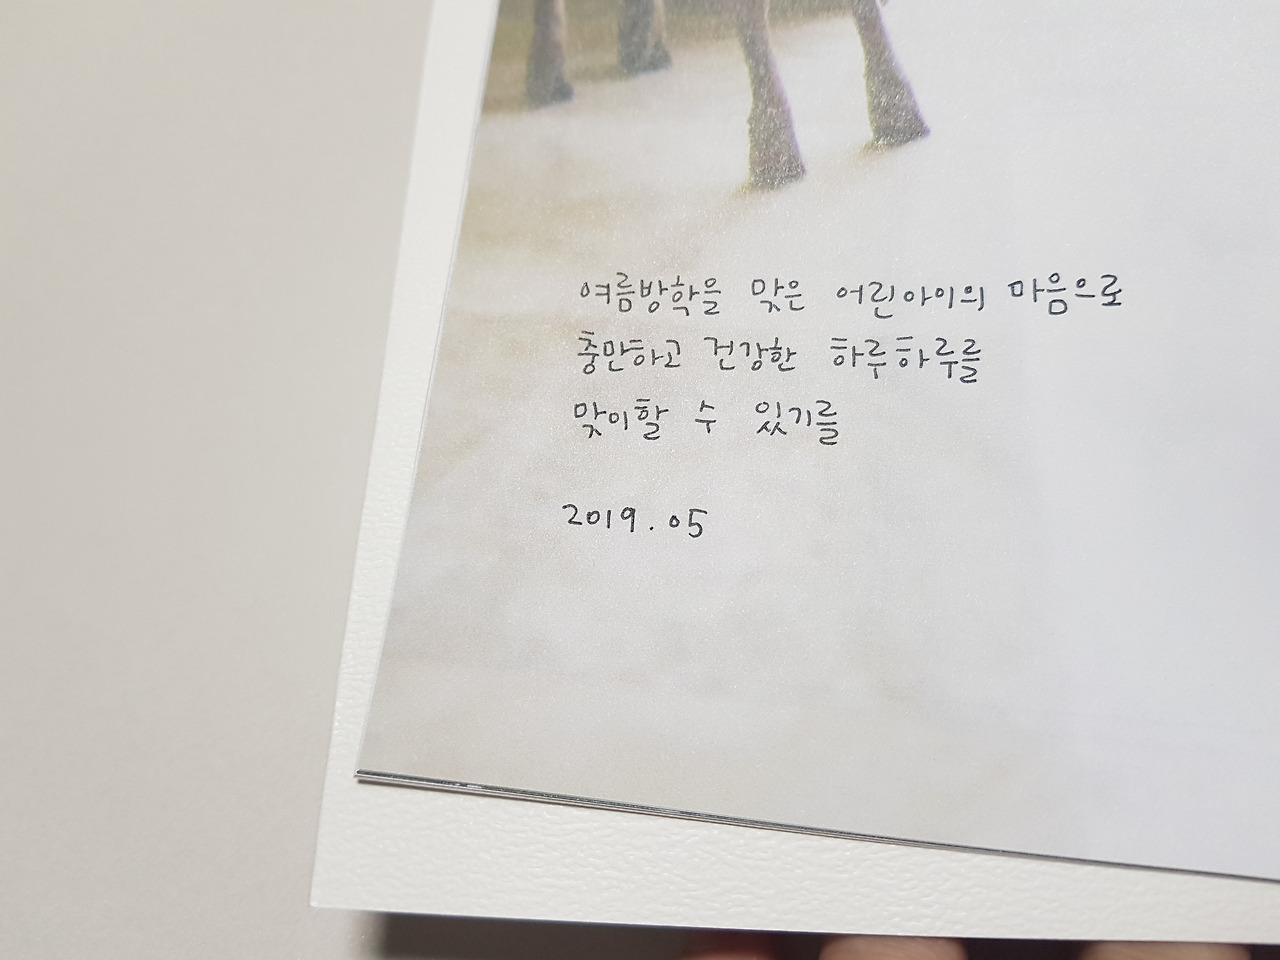 여름방학을 맞은 어린아이의 마음으로
충만하고 건강한 하루하루를
맞이할 수 있기를
2019.05